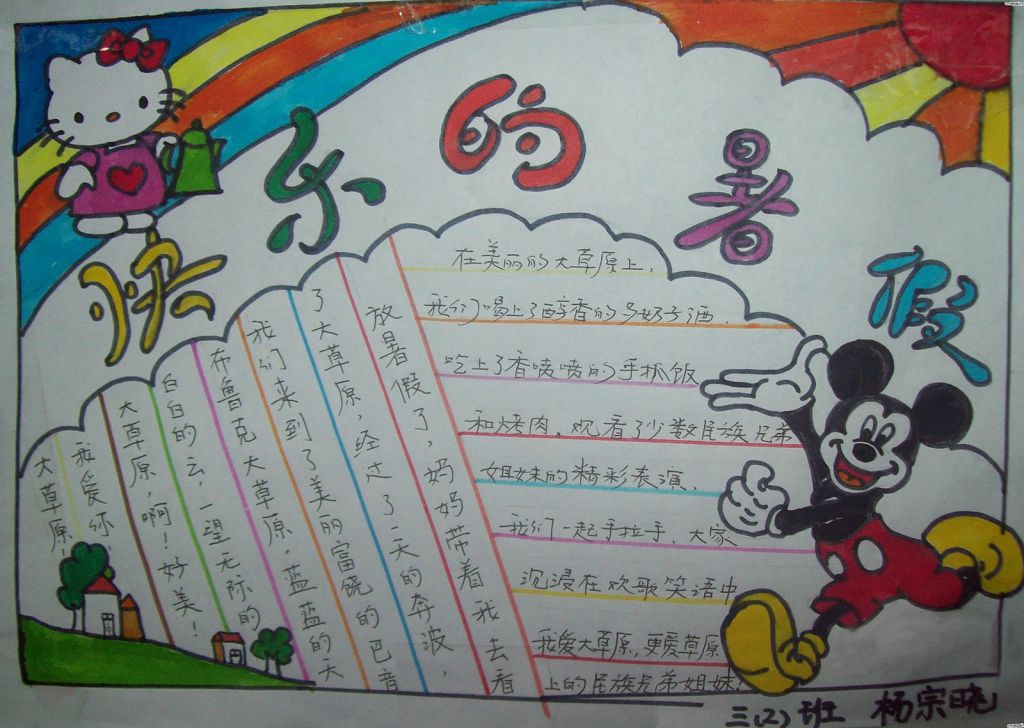 快乐的暑假
放暑假了，妈妈带着我去看
了大草原，经过了一天的奔波，
我们来到了美丽富饶的巴音
布鲁克大草原。蓝蓝的天
白白的云，一望无际的
大草原，啊！好美！
我爱你，
大草原！
在美丽的大草原上，
我们喝上了醇香的马奶子酒，
吃上了香喷喷的手抓饭
和烤肉，观看了少数民族兄弟
姐妹的精彩表演，
我们一起手拉手，大家
沉浸在欢歌笑语中
我爱大草原，更爱草原
上的民族兄弟姐妹！
三(2)班 杨宗晓